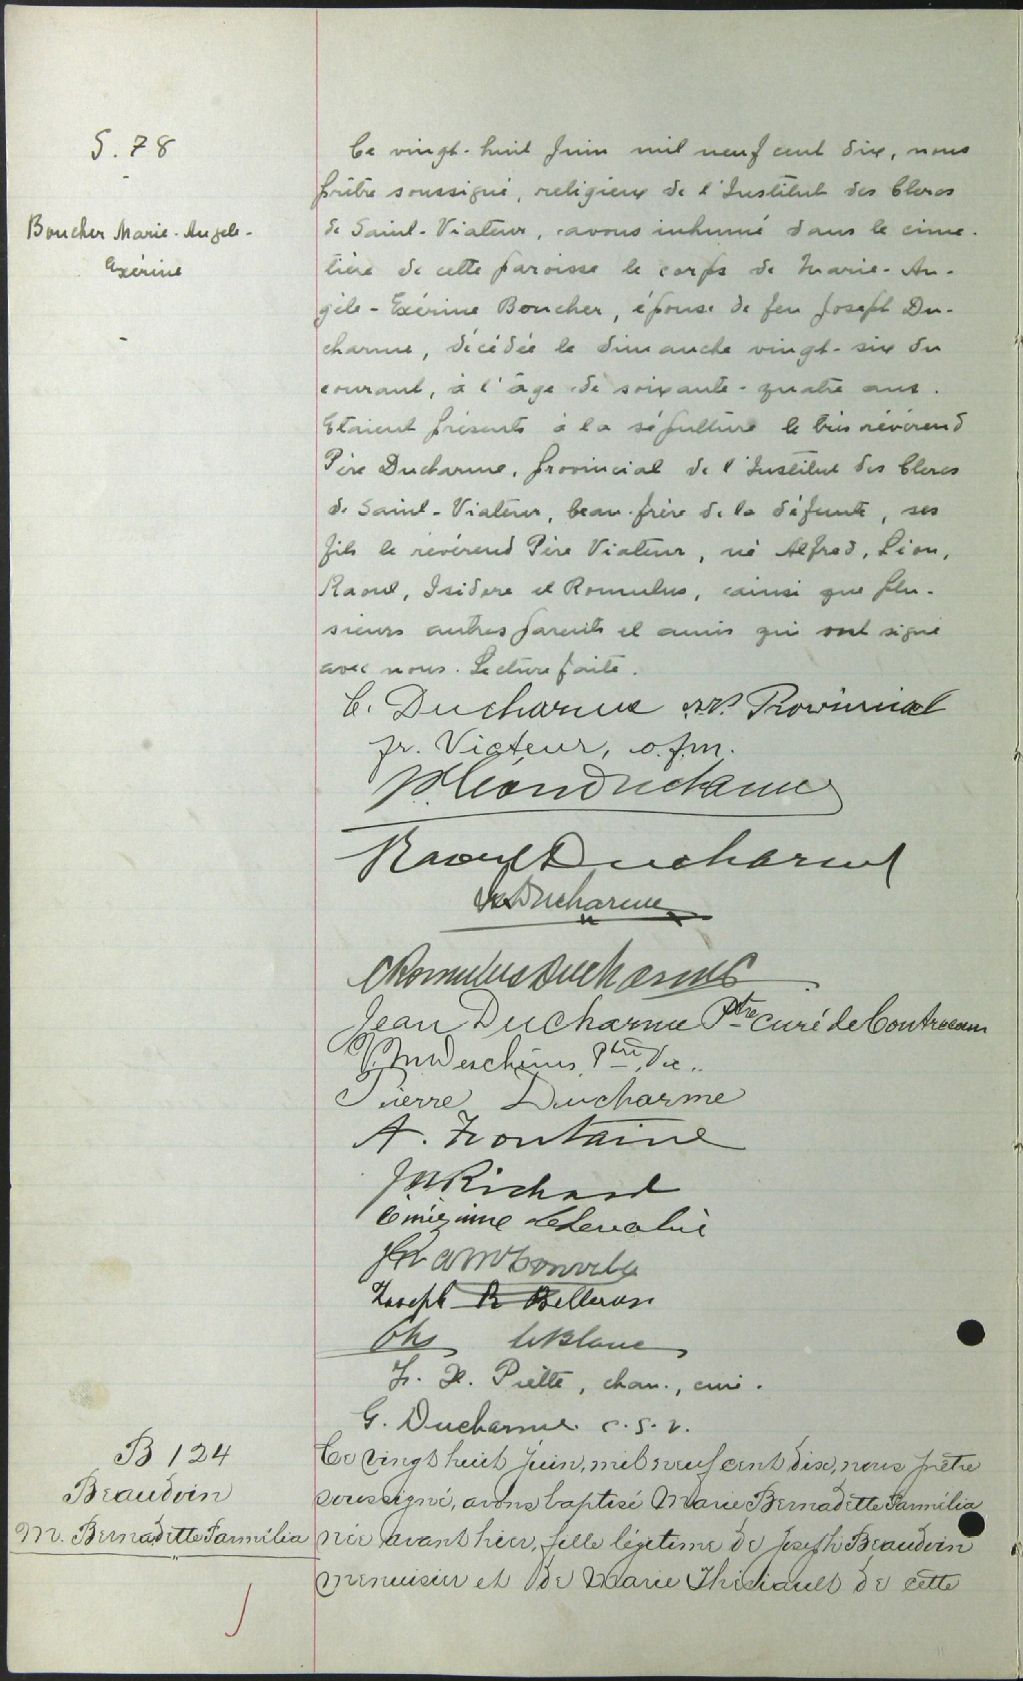 S. 78
Boucher Marie-Angele-
Exérine
Ce vingt-huit Juin mil neuf cent dix, nous
prêtre soussigné, religieux de l'Institut des Clercs
de Saint-Viateur, avons inhumé dans le cime-
tière de cette paroisse le corps de Marie-An-
gèle-Exérine Boucher, épouse de feu Joseph Du-
charme, décédée le dimanche vingt-six du
courant, à l'âge de soixante-quatre ans.
Etaient présents à la sépulture le très révérend
Père Ducharme, provincial de l'Institut des Clercs
de Saint-Viateur, beau-frère de la défunte, ses
fils le révérend Père Viateur, né Alfred, Léon,
Raoul, Isidore et Romulus, ainsi que plu-
sieurs autres parents et amis qui ont signé
avec nous. Lecture faite.
C. Ducharme Provincial
fr. Viateur, o.f.m.
Léon Ducharme
Raoul Ducharme
Ducharme
Romulus Ducharme
Jean Ducharme Ptre curé de Contrecoeur
Deschênes Ptre
Pierre Ducharme
A. Fontaine
Richard
Joseph R Bellerose
Chs LeBlanc
F. X. Piette, chan., curé.
G. Ducharme c.s.v.
B 124
Beaudoin
M. Bernadette Parmélia
Ce vingt huit Juin, mil neuf cent dix, nous prêtre
soussigné, avons baptisé Marie Bernadette Parmélia
née avant hier, fille légitime de Joseph Beaudoin
menuisier et de Marie Thibault de cette